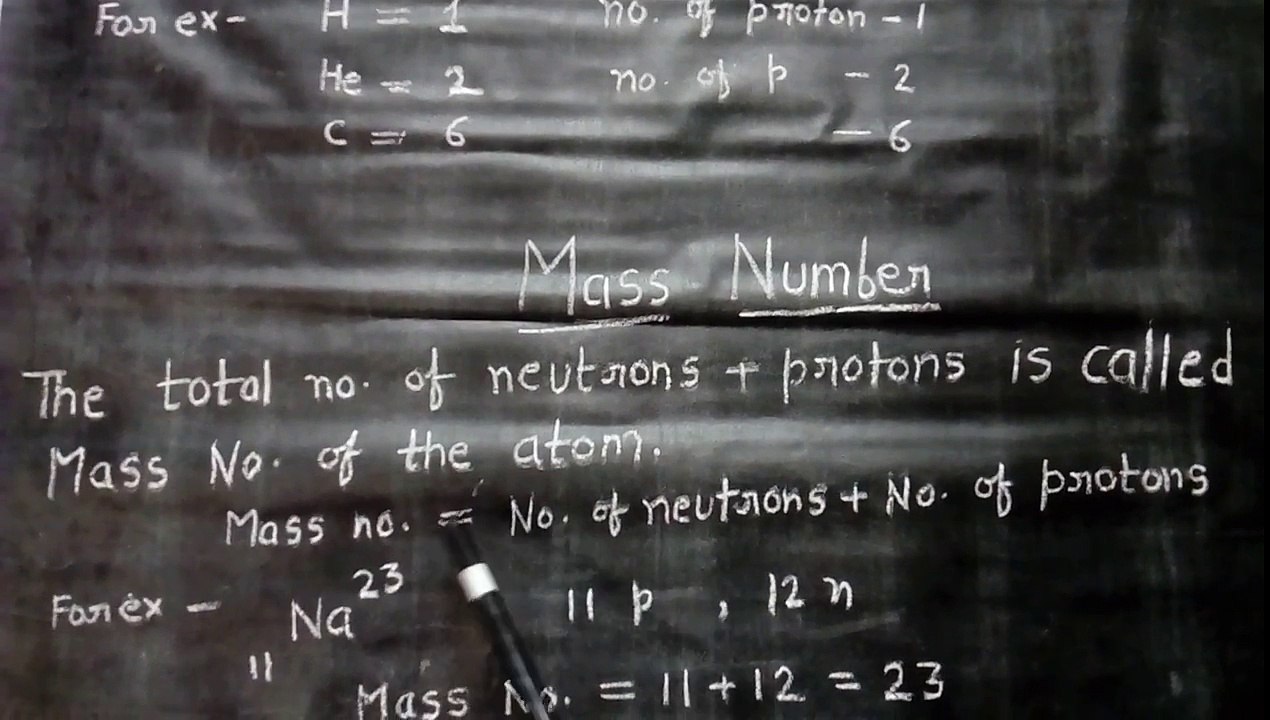 For ex- H = 1 no. of proton - 1
He = 2 no. of p - 2
C = 6 - 6
Mass Number
The total no. of neutrons + protons is called
Mass No. of the atom.
Mass no. = No. of neutrons + No. of protons
For ex - Na 23 11 p , 12 n
11
Mass No. = 11 + 12 = 23